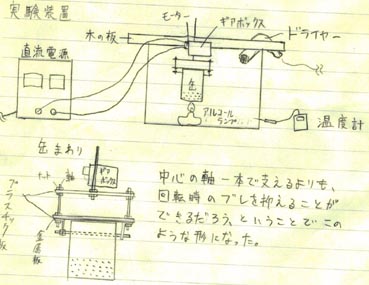 実験装置
モーター
ギアボックス
ドライヤー
木の板
直流電源
缶
アルコール
ランプ
温度計
缶まわり
ナット
軸
ギア
ボックス
プラスチック板
金属板
中心の軸一本で支えるよりも、
回転時のブレを抑えることが
できるだろう、ということでこの
ような形になった。